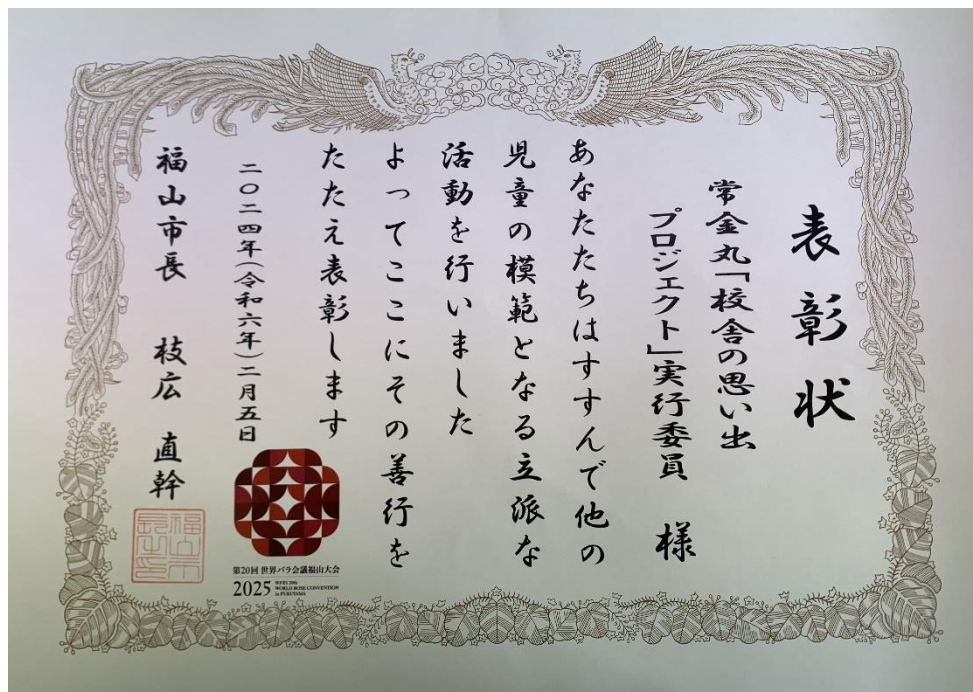 表彰状
常金丸「校舎の思い出
プロジェクト」実行委員 様
あなたたちはすすんで他の
児童の模範となる立派な
活動を行いました
よってここにその善行を
たたえ表彰します
二〇二四年(令和六年)二月五日
福山市長 枝広 直幹
福山市長之印
第20回 世界バラ会議福山大会
2025
WFRS 20th
WORLD ROSE CONVENTION
in FUKUYAMA